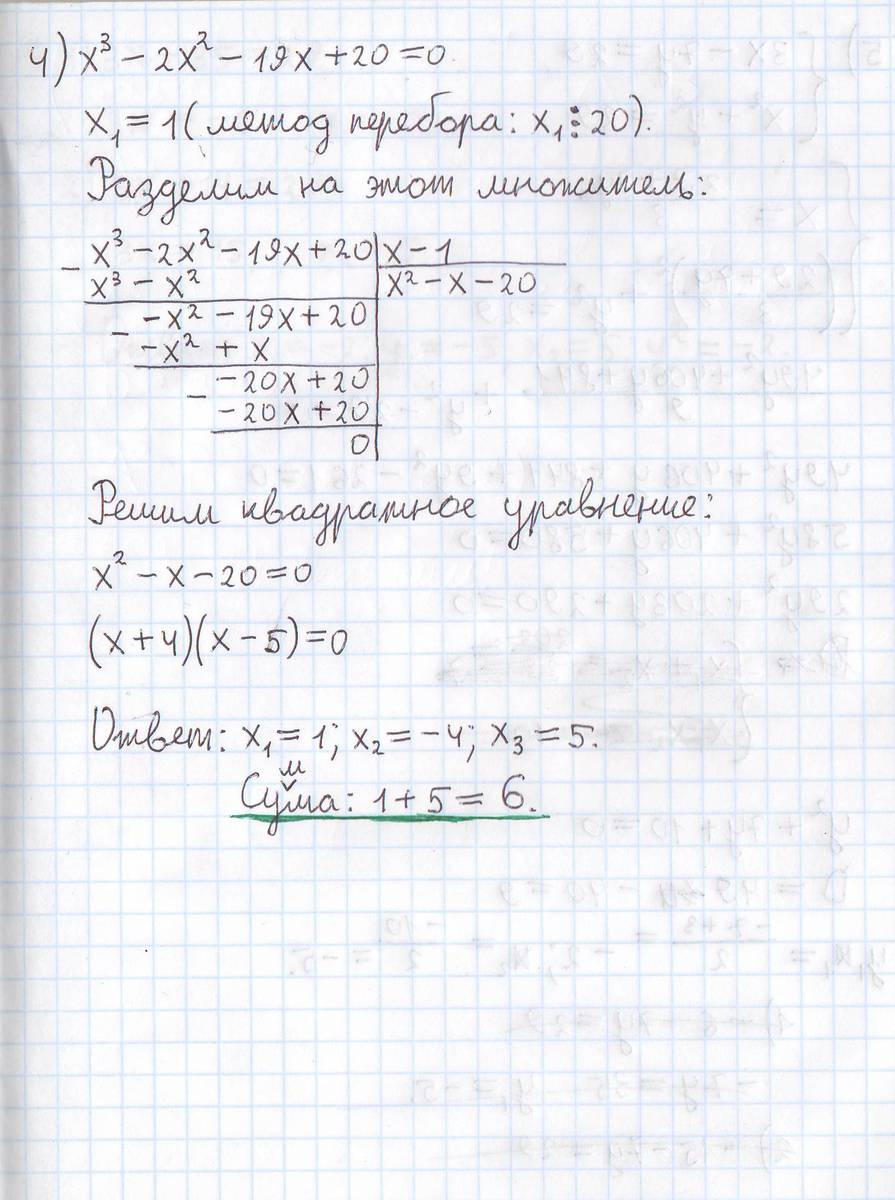 4) x³ − 2x² − 19x + 20 = 0
x₁ = 1 (метод перебора: x₁ ⋮ 20).
Разделим на этот множитель:
− x³ − 2x² − 19x + 20 | x − 1
x³ − x² | x² − x − 20
− −x² − 19x + 20
−x² + x
− −20x + 20
−20x + 20
0
Решим квадратное уравнение:
x² − x − 20 = 0
(x + 4)(x − 5) = 0
Ответ: x₁ = 1; x₂ = −4; x₃ = 5.
Сумма: 1 + 5 = 6.